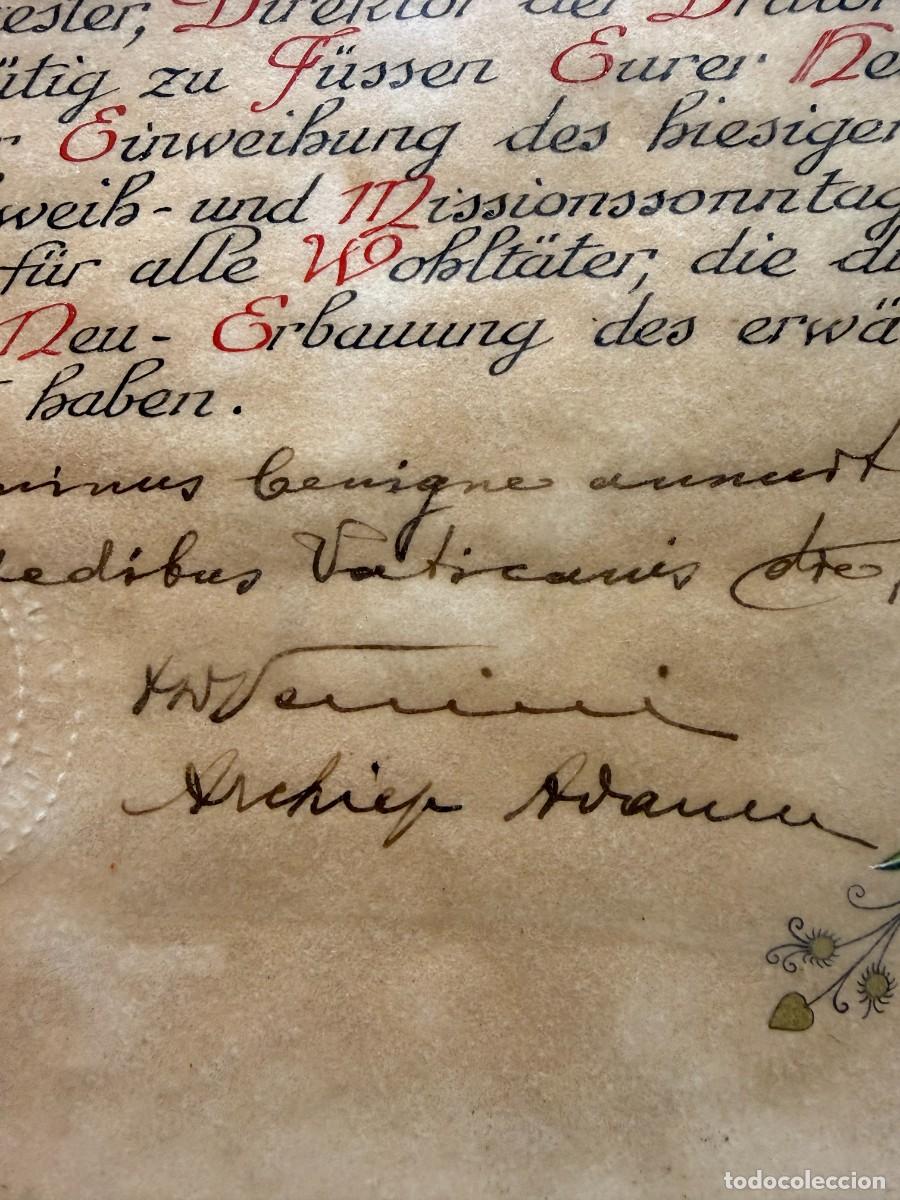 ester, Direktor der Orator
ütig zu Füssen Eurer He
r Einweihung des hiesiger
weih- und Missionssonntag
für alle Wohltäter, die du
Neu- Erbauung des erwä
haben.
minus benigne annuit
edibus Vaticanis die
Archiep Adanen
todocoleccion